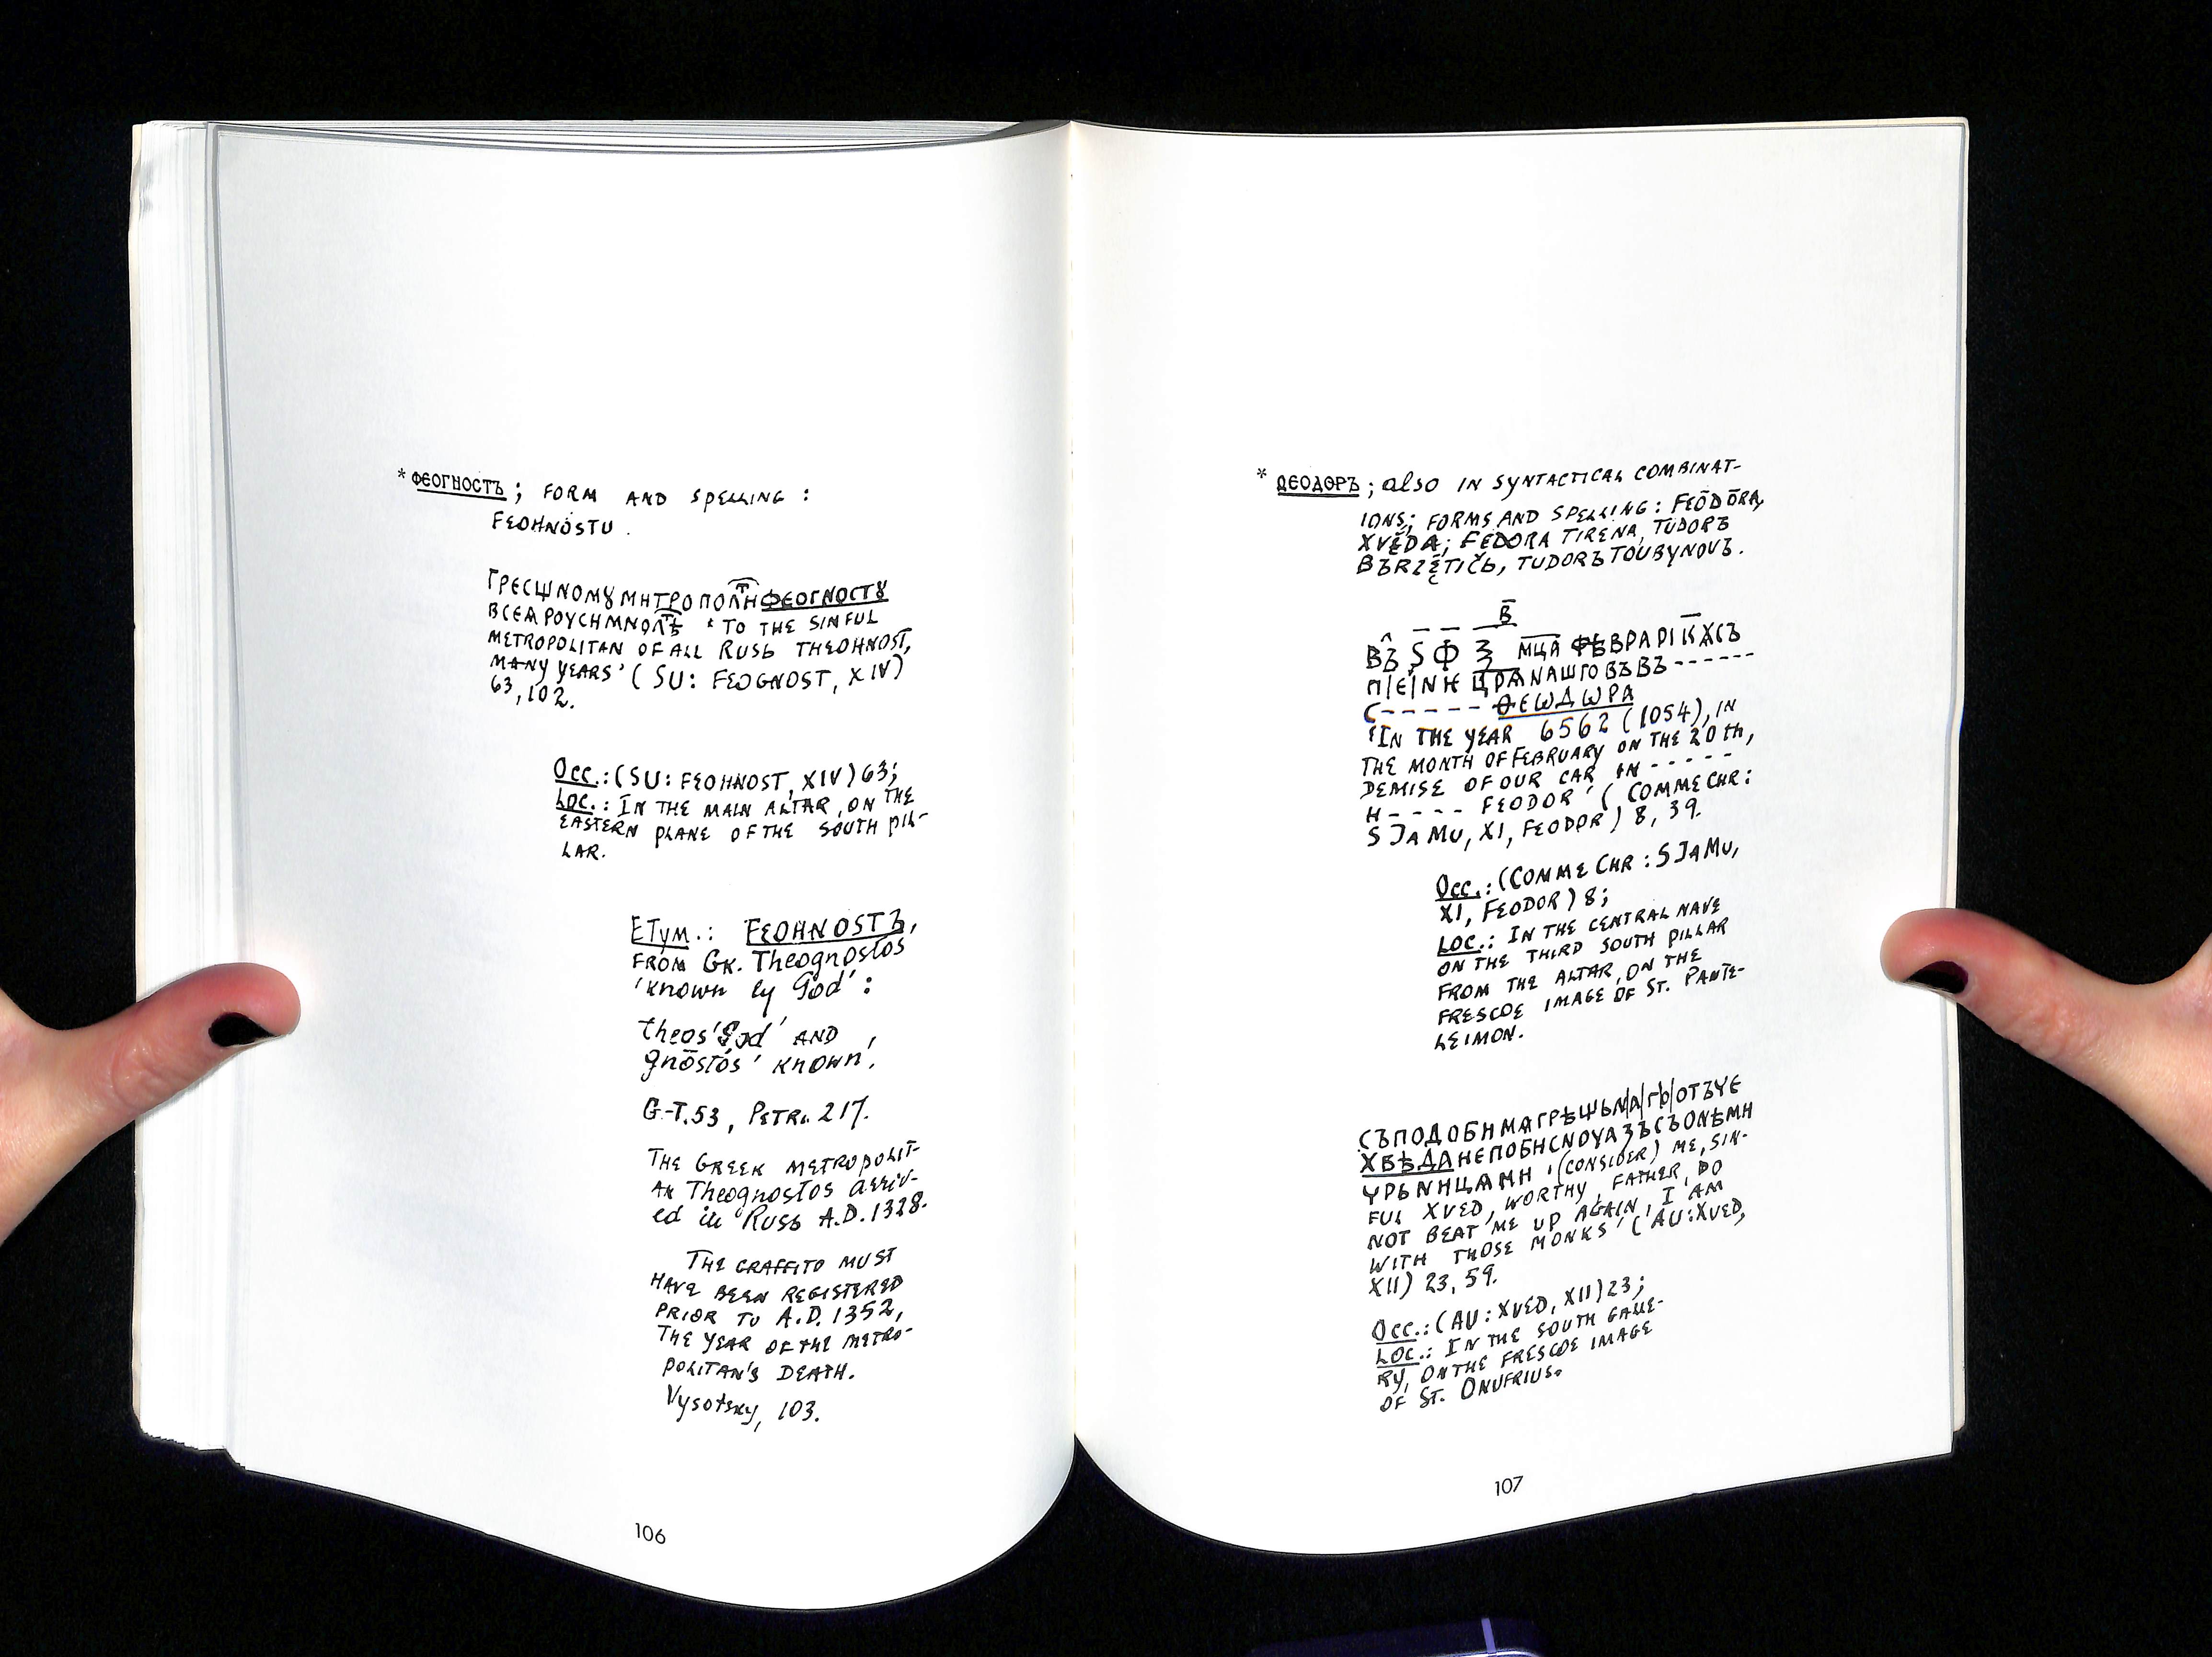 * ФЕОГНОСТЪ ; FORM AND SPELLING :
FEOHNOSTU .
ГРЕСШНОМꙊ МНТРОПОЛ͡ТН ФЕОГНОСТꙊ
ВСЕꙖ РОУСН МNОЛ͡ТѢ ' TO THE SINFUL
METROPOLITAN OF ALL RUSЬ THEOHNOST,
MANY YEARS' ( SU: FEOGNOST, XIV)
63, 102.
Occ.: (SU: FEOHNOST, XIV) 63;
Loc.: IN THE MAIN ALTAR, ON THE
EASTERN PLANE OF THE SOUTH PIL-
LAR.
ETYM.: FEOHNOSTЪ,
FROM GK. Theognostos
'known by God' :
theos 'God' AND
gnōstós 'known'.
G.-T. 53, PETR. 217.
THE GREEK METROPOLIT-
AN Theognostos arriv-
ed in Rusь A.D. 1328.
THE GRAFFITO MUST
HAVE BEEN REGISTERED
PRIOR TO A.D. 1352,
THE YEAR OF THE METRO-
POLITAN'S DEATH.
Vysotsky, 103.
106
* ѲЕОДОРЪ ; also IN SYNTACTICAL COMBINAT-
IONS; FORMS AND SPELLING: FEŌDŌRA,
XVĚDA; FEDORA TIRENA, TUDORЪ
BЪRZĘTIČЬ, TUDORЪ TOUBYNOVЪ.
В̅
ВЪ Ѕ̅ Ф̅ Ѯ МЦА ФѢВРАРІ К̅ ХСЪ
П|Е|NІЕ ЦРѦ NАШГО ВЪ ВЪ ------
С----- ѲЕѠДѠРА
'IN THE YEAR 6562 (1054), IN
THE MONTH OF FEBRUARY ON THE 20th,
DEMISE OF OUR CAR IN -----
H---- FEODOR' ( COMMECHR:
SJAMU, XI, FEODOR) 8, 39.
Occ.: (COMMECHR: SJAMU,
XI, FEODOR) 8;
Loc.: IN THE CENTRAL NAVE
ON THE THIRD SOUTH PILLAR
FROM THE ALTAR, ON THE
FRESCOE IMAGE OF ST. PANTE-
LEIMON.
СЪПОДОБН МѦ ГРѢШЬN|А|ГЬ|ОТЪЧЕ
ХВѢДА НЕ ПОБН СNОУ АЗЪ СЪ ОNѢМН
ЧРЬNНЦАМН '(CONSIDER) ME, SIN-
FUL XVED, WORTHY, FATHER, DO
NOT BEAT ME UP AGAIN, I AM
WITH THOSE MONKS' ( AU: XVED,
XII) 23, 59.
Occ.: (AU: XVED, XII) 23;
Loc.: IN THE SOUTH GALLE-
RY, ON THE FRESCOE IMAGE
OF ST. ONUFRIUS.
107